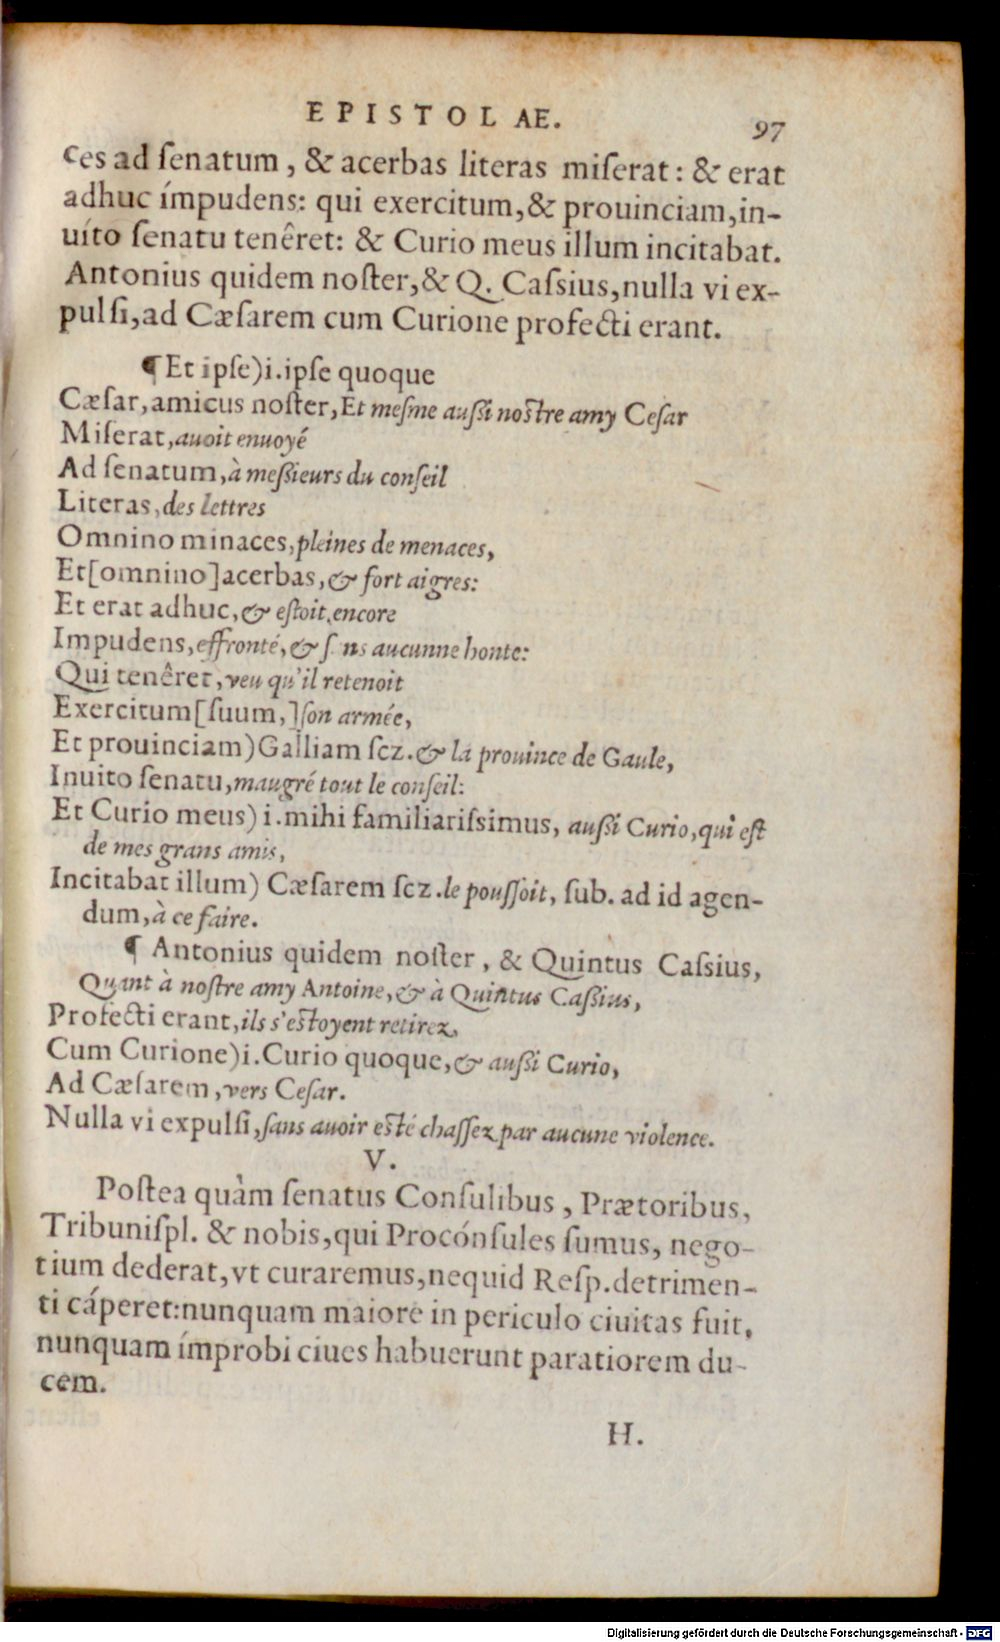 EPISTOLAE. 97
ces ad ſenatum, & acerbas literas miſerat: & erat
adhuc ímpudens: qui exercitum, & prouinciam, in-
uíto ſenatu tenêret: & Curio meus illum incitabat.
Antonius quidem noſter, & Q. Caſsius, nulla vi ex-
pulſi, ad Cæſarem cum Curione profecti erant.
¶ Et ipſe) i. ipſe quoque
Cæſar, amicus noſter, Et meſme auſsi noſtre amy Ceſar
Miſerat, auoit enuoyé
Ad ſenatum, à meſsieurs du conſeil
Literas, des lettres
Omnino minaces, pleines de menaces,
Et [omnino] acerbas, & fort aigres:
Et erat adhuc, & eſtoit encore
Impudens, effronté, & ſ ns aucunne honte:
Qui tenêret, veu qu'il retenoit
Exercitum [ſuum,] ſon armée,
Et prouinciam) Galliam ſcz. & la prouince de Gaule,
Inuito ſenatu, maugré tout le conſeil:
Et Curio meus) i. mihi familiariſsimus, auſsi Curio, qui eſt
de mes grans amis,
Incitabat illum) Cæſarem ſcz. le pouſſoit, ſub. ad id agen-
dum, à ce faire.
¶ Antonius quidem noſter, & Quintus Caſsius,
Quant à noſtre amy Antoine, & à Quintus Caſsius,
Profecti erant, ils s'eſtoyent retirez,
Cum Curione) i. Curio quoque, & auſsi Curio,
Ad Cæſarem, vers Ceſar.
Nulla vi expulſi, ſans auoir eſté chaſſez par aucune violence.
V.
Poſtea quàm ſenatus Conſulibus, Prætoribus,
Tribuniſpl. & nobis, qui Procónſules ſumus, nego-
tium dederat, vt curaremus, nequid Reſp. detrimen-
ti cáperet: nunquam maiore in periculo ciuitas fuit,
nunquam ímprobi ciues habuerunt paratiorem du-
cem.
H.
Digitalisierung gefördert durch die Deutsche Forschungsgemeinschaft - DFG